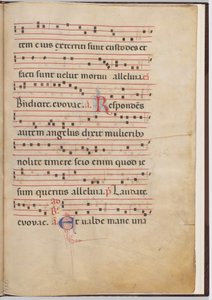 tem eius exterriti sunt custodes et
facti sunt velut mortui alleluia
Bndicite. evovae. a. Respondēs
autem angelus dixit mulieribꝰ
nolite timere scio enim quod ie
sum queritis alleluia. p̄ Laudate.
evovae. a Et valde mane una